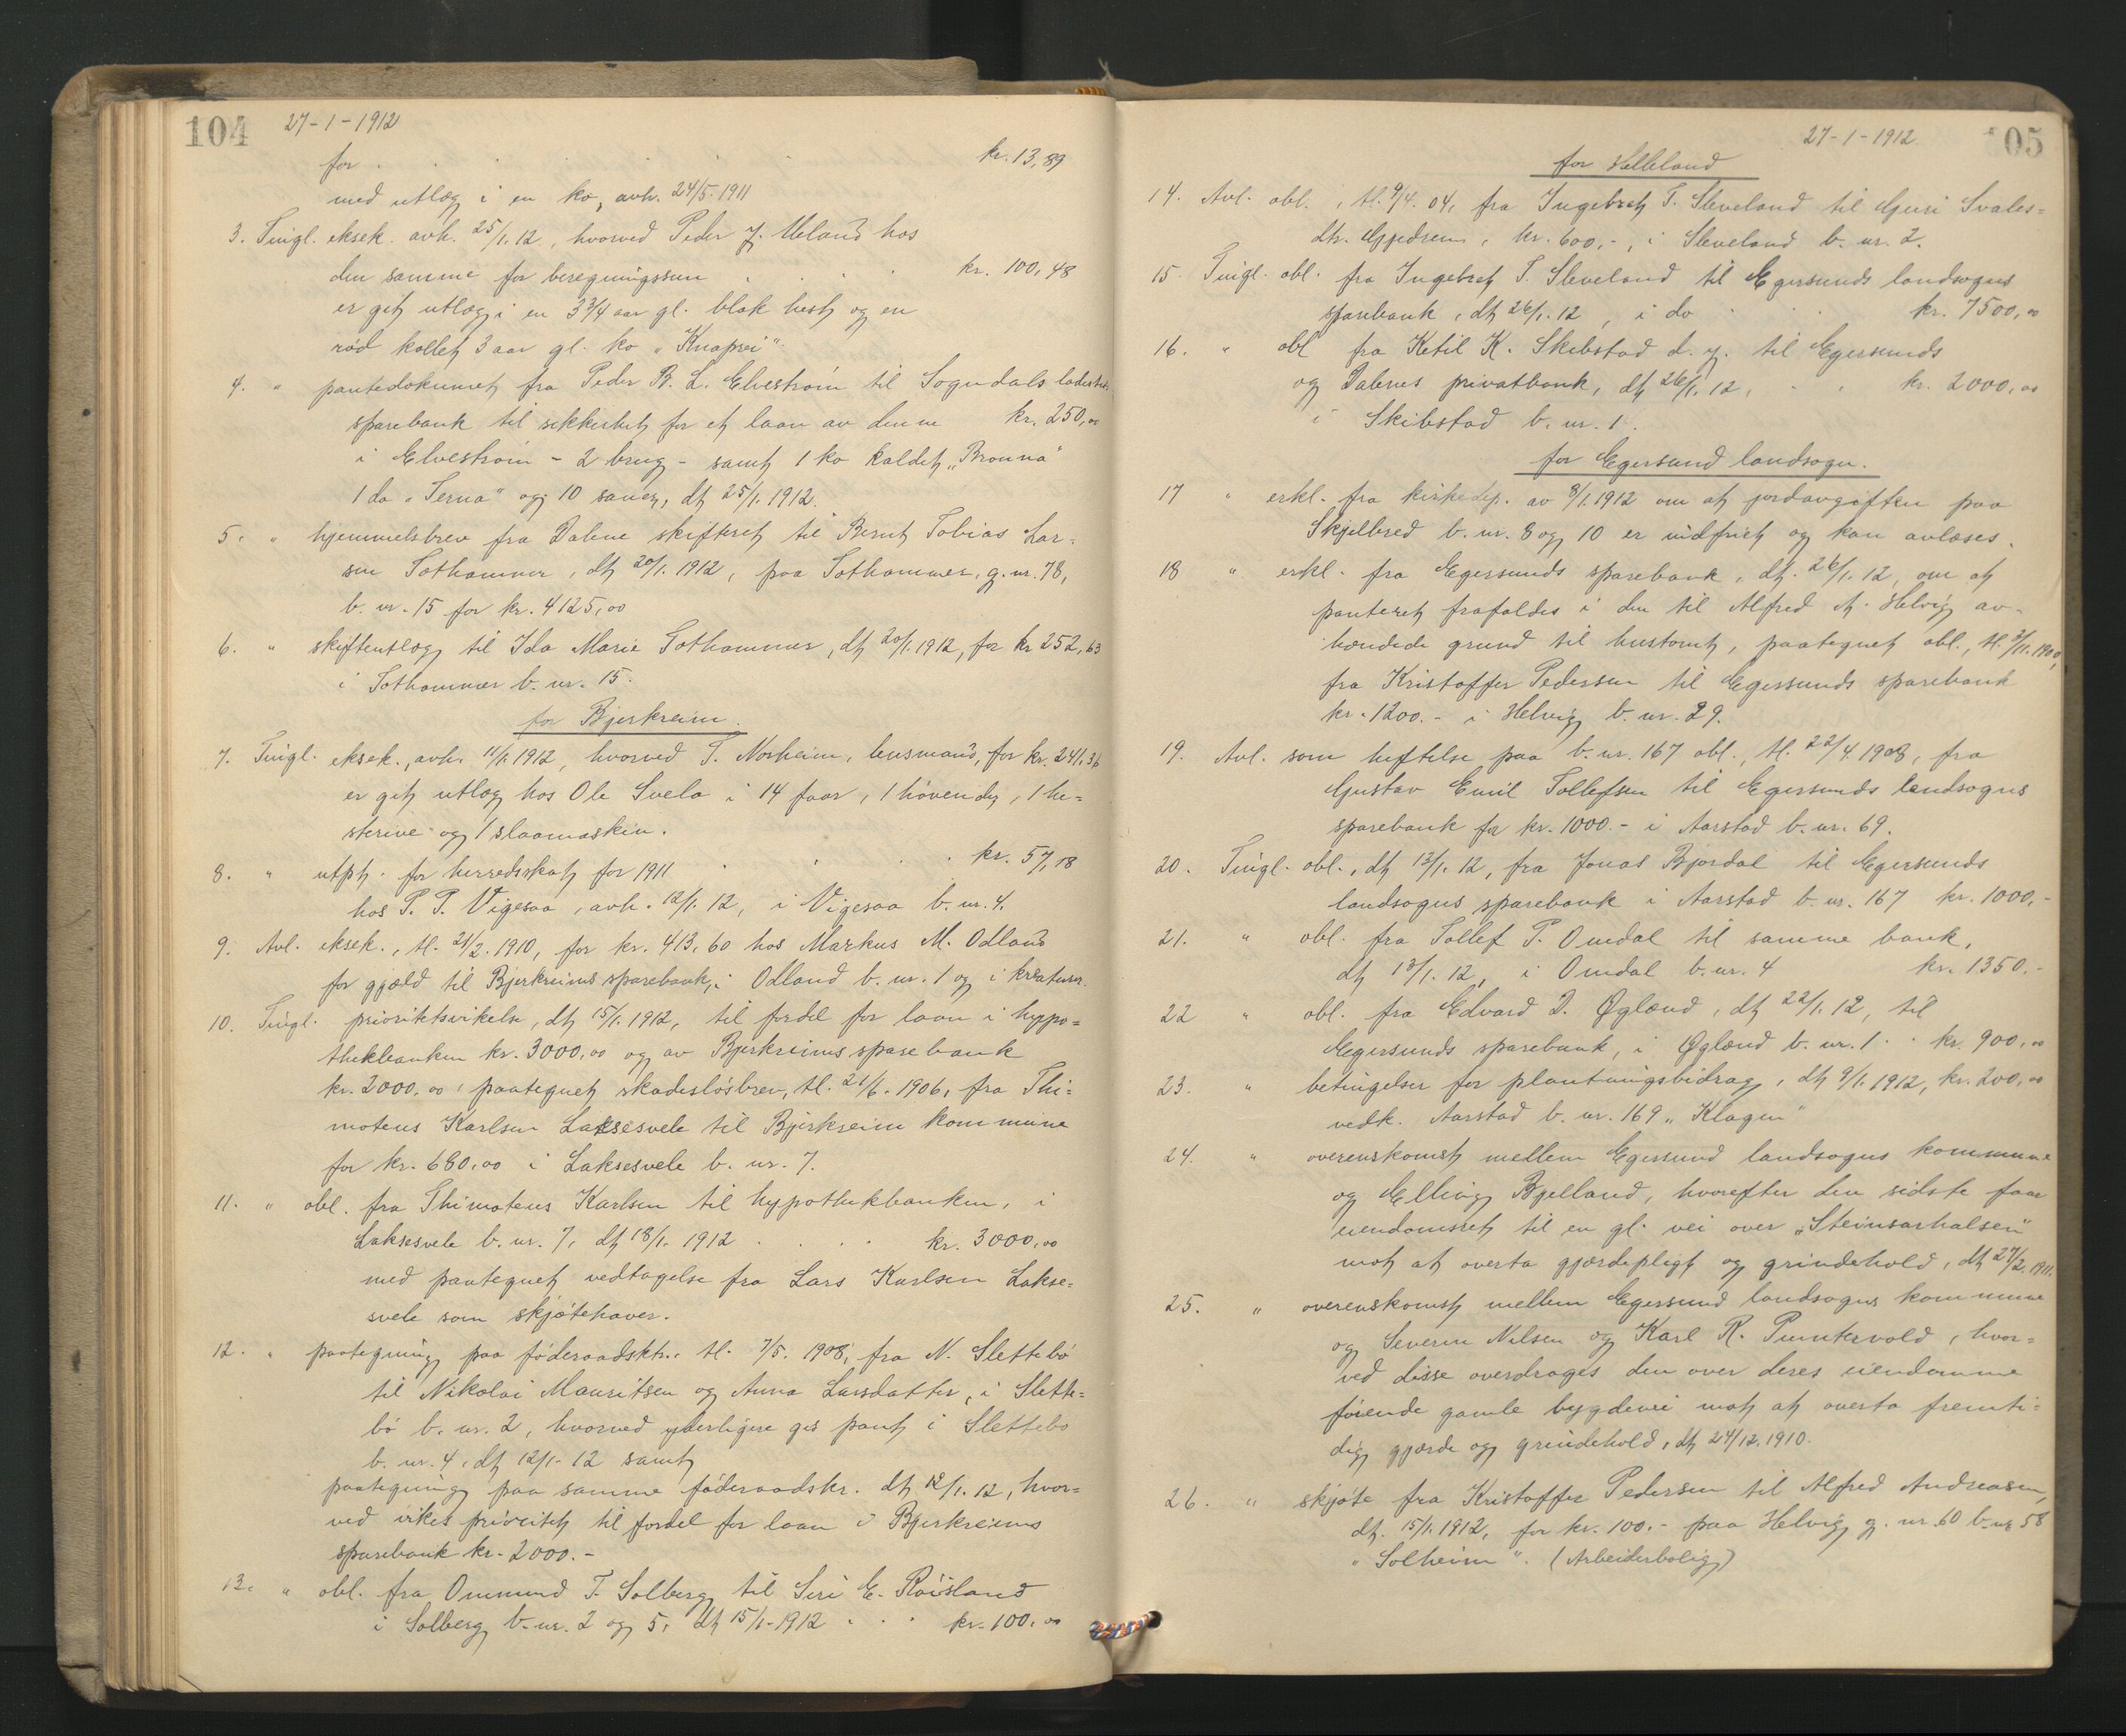 104 27-1-1912
for . . . . . kr. 13,89
med utlæg i en ko, avh. 24/5. 1911
3. Tingl. eksek. avh. 25/1. 12, hvorved Peder J. Meland hos
den samme for beregningssum . . . . kr. 100,48
er git utlæg i en 3 3/4 aar gl. blak hest og en
rød kollet 3 aar gl. ko "Knaprei"
4. " pantedokument fra Peder B. L. Elvestrøm til Sogndals ladesteds
sparebank til sikkerhet for et laan av denne kr. 250,00
i Elvestrøm - 2 brug - samt 1 ko kaldet "Bronna"
1 do "Terna" og 10 sauer, dt 25/1. 1912.
5. " hjemmelsbrev fra Dalene skifteret til Bernt Tobias Lar=
sen Tothammer, dt 20/1. 1912, paa Tothammer, g. nr. 78,
b. nr. 15 for kr. 4125,00
6. " skifteutlæg til Ida Marie Tothammer, dt 20/1. 1912, for kr 252,63
i Tothammer b. nr. 15.
for Bjerkreim.
7. Tingl. eksek., avh. 11/1. 1912, hvorved T. Norheim, lensmand, for kr. 241,36
er git utlæg hos Ole Svela i 14 faar, 1 høvender, 1 he=
sterive og 1 slaamaskin.
8. " utpt. for herredsskat for 1911 . . . . kr. 57,18
hos P. P. Vigesaa, avh. 12/1. 12, i Vigesaa b. nr. 4.
9. Avl. eksek., tl. 21/2. 1910, for kr. 413,60 hos Markus M. Odland
for gjæld til Bjerkreims sparebank, i Odland b. nr. 1 og i kreaturer.
10. Tingl. prioritetsvikelse, dt 15/1. 1912, til fordel for laan i hypo=
thekbanken kr. 3000,00 og av Bjerkreims sparebank
kr. 2000,00, paategnet skadesløsbrev, tl. 21/6. 1906, fra Thi=
moteus Karlsen Laksesvele til Bjerkreim kommune
for kr. 680,00 i Laksesvele b. nr. 7.
11. " obl. fra Thimoteus Karlsen til hypothekbanken, i
Laksesvele b. nr. 7, dt 18/1. 1912 . . . . kr. 3000,00
med paategnet vedtagelse fra Lars Karlsen Lakse=
svele som skjøtehaver.
12. " paategning paa føderaadsktr. tl. 7/5. 1908, fra N. Slettebø
til Nikolai Mauritsen og Anna Larsdatter, i Slette=
bø b. nr. 2, hvorved yderligere gis pant i Slettebø
b. nr. 4, dt 12/1. 12 samt
paategning paa samme føderaadskr. dt 12/1. 12, hvor=
ved vikes prioritet til fordel for laan i Bjerkreims
sparebank kr. 2000.-
13. " obl. fra Ommund T. Solberg til Siri E. Røisland
i Solberg b. nr. 2 og 5, dt 15/1. 1912 . . . kr. 100,00
27-1-1912 105
for Helleland
14. Avl. obl., tl. 9/4. 04, fra Ingebret T. Sleveland til Guri Svales=
dtr. Gjedrem, kr. 600,-, i Sleveland b. nr. 2.
15. Tingl. obl. fra Ingebret T. Sleveland til Egersunds landsogns
sparebank, dt 26/1. 12, i do . . . kr. 7500,00
16. " obl fra Ketil K. Skibstad d. y. til Egersunds
og Dalenes privatbank, dt 26/1. 12, . . kr. 2000,00
i Skibstad b. nr. 1.
for Egersund landsogn.
17 " erkl. fra kirkedep. av 8/1. 1912 om at jordavgiften paa
Skjelbred b. nr. 8 og 10 er indfriet og kan avlæses.
18 " erkl. fra Egersunds sparebank, dt. 26/1. 12, om at
panteret frafaldes i den til Alfred A. Helvig av=
hændede grund til hustomt, paategnet obl., tl. 3/11. 1900,
fra Kristoffer Pedersen til Egersunds sparebank
kr. 1200.- i Helvig b. nr. 29.
19. Avl. som heftelse paa b. nr. 167 obl., tl. 22/4. 1908, fra
Gustav Emil Tollefsen til Egersunds landsogns
sparebank for kr. 1000.- i Aarstad b. nr. 69.
20. Tingl. obl., dt 13/1. 12, fra Jonas Bjordal til Egersunds
landsogns sparebank i Aarstad b. nr. 167 kr. 1000,-
21. " obl. fra Tollef P. Omdal til samme bank,
dt 13/1. 12, i Omdal b. nr. 4 kr. 1350.-
22 " obl. fra Edvard D. Øglænd, dt 22/1. 12, til
Egersunds sparebank, i Øglænd b. nr. 1 . . kr. 900,00
23. " betingelser for plantningsbidrag, dt 9/1. 1912, kr. 200,00
vedk. Aarstad b. nr. 169 "Klagen"
24. " overenskomst mellem Egersund landsogns kommune
og Elling Bjelland, hvorefter den sidste faar
eiendomsret til en gl. vei over "Steinsarhalsen"
mot at overta gjærdepligt og grindehold, dt 27/2. 1911.
25. " overenskomst mellem Egersund landsogns kommune
og Severin Nilsen og Karl R. Puntervold, hvor=
ved disse overdrages den over deres eiendomme
førende gamle bygdevei mot at overta fremti=
dig gjærde og grindehold, dt 24/12. 1910.
26. " skjøte fra Kristoffer Pedersen til Alfred Andreasen,
dt. 15/1. 1912, for kr. 100.- paa Helvig g. nr. 60 b. nr 58
"Solheim". (Arbeiderbolig)